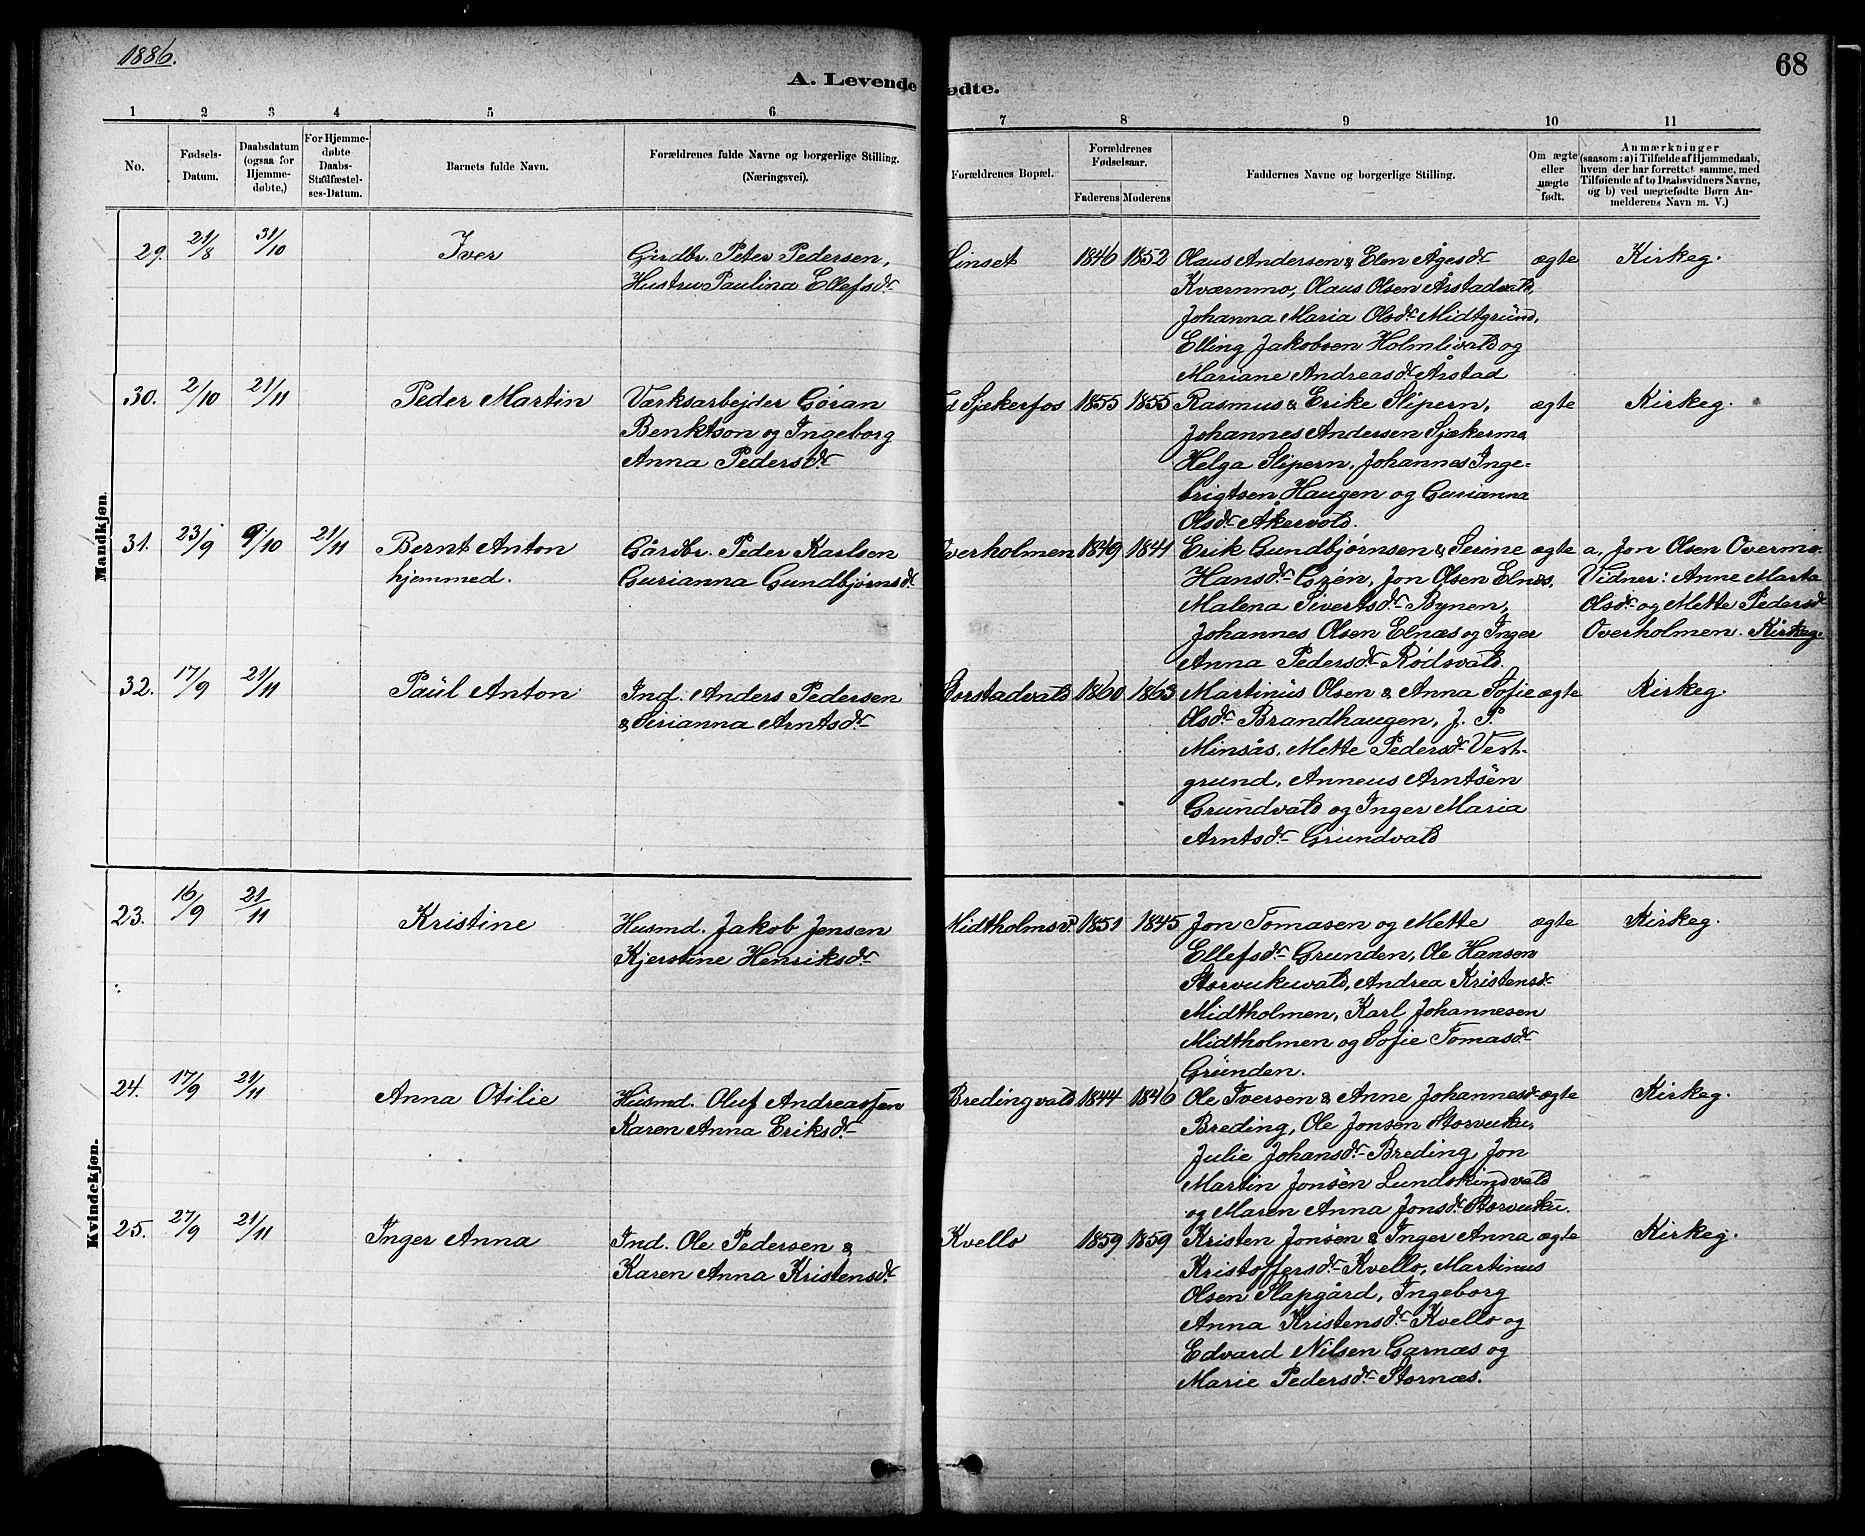 1886.
68
A. Levende fødte.
1 2 3 4 5 6 7 8 9 10 11
No.
Fødsels-
Datum.
Daabsdatum
(ogsaa for
Hjemme-
døbte.)
For Hjemme-
døbte
Daabs-
Stadfæstel-
ses-Datum.
Barnets fulde Navn.
Forældrenes fulde Navne og borgerlige Stilling.
(Næringsvei).
Forældrenes Bopæl.
Forældrenes
Fødselsaar.
Faderens Moderens
Faddernes Navne og borgerlige Stilling.
Om ægte
eller
uægte
født.
Anmærkninger
(saasom: a) i Tilfælde af Hjemmedaab,
hvem der har forrettet samme, med
Tilføiende af to Daabsvidners Navne,
og b) ved uægtefødte Børn An-
melderens Navn m. V.)
Mandkjøn.
29. 21/8 31/10 Iver
Gårdbr. Peter Pedersen,
Hustru Paulina Ellefsdr
Linset 1846 1852
Olaus Andersen & Elen Ågesdr
Kværnmo, Olaus Olsen Årstadvald,
Johanna Maria Olsdr Midtgrund,
Elling Jakobsen Holmlivald og
Mariane Andreasdr Årstad
ægte Kirkeg.
30. 2/10 21/11 Peder Martin
Værksarbejder Gøran
Benktson og Ingeborg
Anna Pedersdr
Sjækerfos 1855 1855
Rasmus & Erike Slipern,
Johannes Andersen Sjækermo,
Helga Slipern, Johannes Inge-
brigtsen Haugen og Gurianna
Olsdr Åkervold.
ægte Kirkeg.
31. 23/9 9/10 21/11 Bernt Anton
hjemmed.
Gårdbr. Peder Karlsen
Gurianna Gundbjørnsdr
Overholmen 1849 1841
Erik Gundbjørnsen & Serine
Hansdr Grén, Jon Olsen Elnæs,
Malena Sivertsdr Bynen,
Johannes Olsen Elnæs og Inger
Anna Pedersdr Rødsvald.
ægte
a, Jon Olsen Overmo.
Vidner: Anne Marta
Olsdr og Mette Pedersdr
Overholmen. Kirkeg.
32. 17/9 21/11 Paul Anton
Ind. Anders Pedersen
& Sirianna Arntsdr
Borstadvald 1860 1863
Martinus Olsen & Anna Sofie
Olsdr Brandhaugen, J. P.
Minsås, Mette Pedersdr Vest-
grund, Anneus Arntsen
Grundvald og Inger Maria
Arntsdr Grundvald
ægte Kirkeg.
Kvindekjøn.
23. 16/9 21/11 Kristine
Husmd. Jakob Jensen
Kjerstine Henriksdr
Midtholmsv. 1851 1845
Jon Tomasen og Mette
Ellefsdr Grunden, Ole Hanson
Storvukuvald, Andrea Kristensdr
Midtholmen, Karl Johannesen
Midtholmen og Sofie Tomasdr
Grunden.
ægte Kirkeg.
24. 17/9 21/11 Anna Otilie
Husmd. Oluf Andreassen
Karen Anna Eriksdr
Bredingvald 1844 1846
Ole Iversen & Anne Johannesdr
Breding, Ole Jonsen Storvuku,
Julie Johansdr Breding, Jon
Martin Jonsen Lundskindvald
og Maren Anna Jonsdr Storvuku.
ægte Kirkeg.
25. 27/9 21/11 Inger Anna
Ind. Ole Pedersen &
Karen Anna Kristensdr
Kvello 1859 1859
Kristen Jonsen & Inger Anna
Kristoffersdr Kvello, Martinus
Olsen Slapgård, Ingeborg
Anna Kristensdr Kvello og
Edvard Nilsen Garnæs og
Marie Pedersdr Stornæs.
ægte Kirkeg.